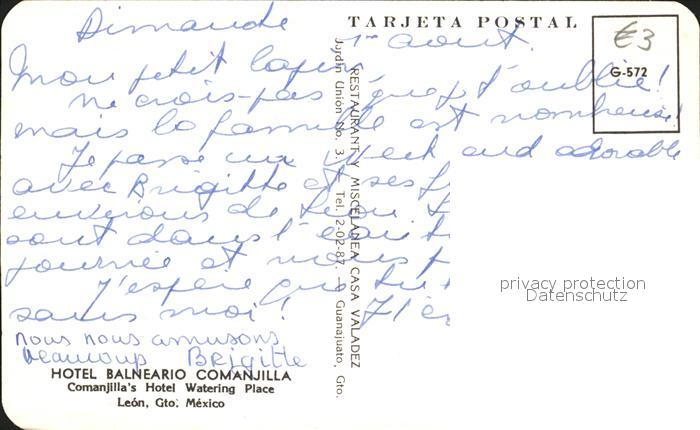 TARJETA POSTAL
Dimanche 1er aout.
€3
G-572
Mon petit lapin
Ne crois-pas que je t'oublie!
mais la famille est nombreuse!
Je passe un Week end adorable
avec Brigitte et ses
environs de Leon
sont dans l'eau
journée et nous
J'espère que tu
sans moi!
nous nous amusons
beaucoup Brigitte
HOTEL BALNEARIO COMANJILLA
Comanjilla's Hotel Watering Place
León, Gto. México
RESTAURANT Y MISCELANEA CASA VALADEZ
Jardín Unión No. 3. — Tel. 2-02-87. — Guanajuato, Gto.
privacy protection
Datenschutz